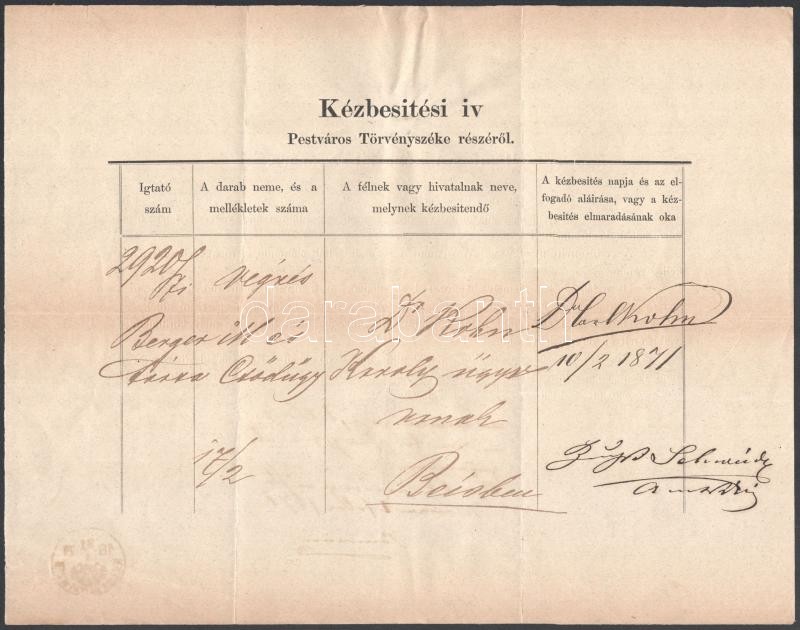 Kézbesitési iv
Pestváros Törvényszéke részéről.
Igtató
szám
A darab neme, és a
mellékletek száma
A félnek vagy hivatalnak neve,
melynek kézbesitendő
A kézbesités napja és az el-
fogadó aláirása, vagy a kéz-
besités elmaradásának oka
végzés
Berger M és
társa Csődügy
17/2
Dr Kohn
Karoly
Bécsben
Kohn
10/2 1871
darabanth